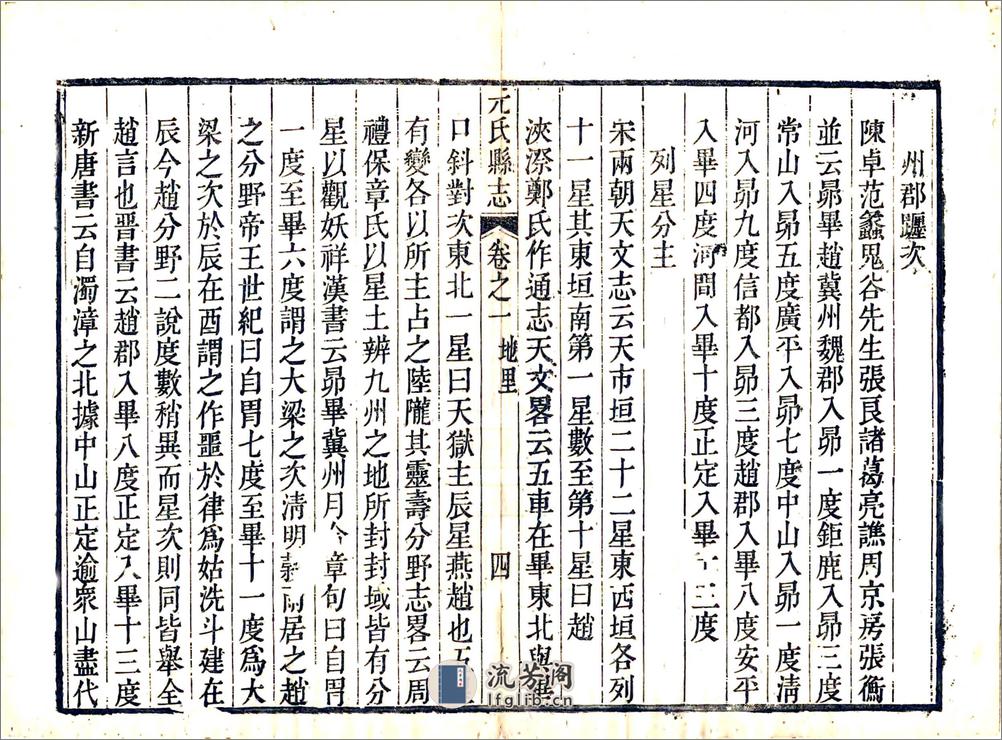 州郡躔次
陳卓范蠡鬼谷先生張良諸葛亮譙周京房張衡
並云昴畢趙冀州魏郡入昴一度鉅鹿入昴三度
常山入昴五度廣平入昴七度中山入昴一度清
河入昴九度信都入昴三度趙郡入畢八度安平
入畢四度河間入畢十度正定入畢十三度
列星分主
宋兩朝天文志云天市垣二十二星東西垣各列
十一星其東垣南第一星數至第十星曰趙
浹漈鄭氏作通志天文畧云五車在畢東北與
口斜對次東北一星曰天獄主辰星燕趙也五
有變各以所主占之陸隴其靈壽分野志畧云周
禮保章氏以星土辨九州之地所封封域皆有分
星以觀妖祥漢書云昴畢冀州月令章句曰自胃
一度至畢六度謂之大梁之次清明 居之趙
之分野帝王世紀曰自胃七度至畢十一度爲大
梁之次於辰在酉謂之作噩於律爲姑洗斗建在
辰今趙分野二說度數稍異而星次則同皆舉全
趙言也晋書云趙郡入畢八度正定入畢十三度
新唐書云自濁漳之北據中山正定逾衆山盡代
元氏縣志 卷之一 地里 四
流芳阁
lfglib.cn